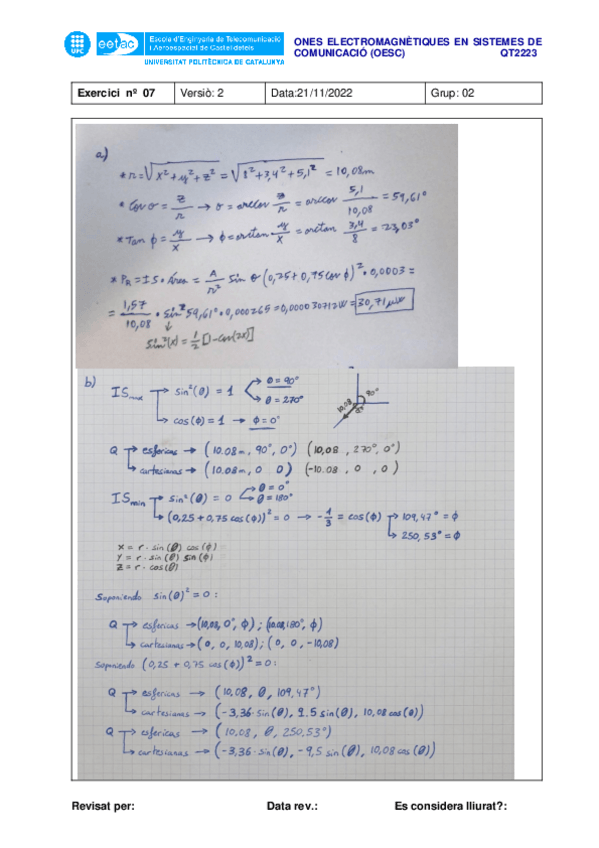 UPC
eetac
Escola d'Enginyeria de Telecomunicació
i Aeroespacial de Castelldefels
UNIVERSITAT POLITÈCNICA DE CATALUNYA
ONES ELECTROMAGNÈTIQUES EN SISTEMES DE
COMUNICACIÓ (OESC) QT2223
Exercici nº 07 Versiò: 2 Data:21/11/2022 Grup: 02
a)
* r = √x² + y² + z² = √8² + 3,4² + 5,1² = 10,08m
* Cos θ = z/r → θ = arccos z/r = arccos 5,1/10,08 = 59,61°
* Tan ϕ = y/x → ϕ = arctan y/x = arctan 3,4/8 = 23,03°
* P_R = IS · Área = A/r² sin θ (0,25 + 0,75 cos ϕ)² · 0,0003 =
= 1,57/10,08 · sin² 59,61° · 0,000265 = 0,00003071W = 30,71 μW
sin²(x) = 1/2 [1-cos(2x)]
b)
IS max → sin²(θ) = 1 θ = 90°
θ = 270°
→ cos(ϕ) = 1 → ϕ = 0°
10,08 90°
Q → esfericas → (10.08m, 90°, 0°) (10,08, 270°, 0°)
→ cartesianas → (10.08m, 0 0) (-10.08, 0, 0)
IS min → sin²(θ) = 0 θ = 0°
θ = 180°
→ (0,25 + 0,75 cos(ϕ))² = 0 → -1/3 = cos(ϕ) → 109,47° = ϕ
→ 250,53° = ϕ
X = r · sin(θ) cos(ϕ)
Y = r · sin(θ) sin(ϕ)
Z = r · cos(θ)
Suponiendo sin(θ)² = 0 :
Q → esfericas → (10,08, 0°, ϕ) ; (10.08, 180°, ϕ)
→ cartesianas → (0, 0, 10,08) ; (0, 0, -10,08)
Suponiendo (0,25 + 0,75 cos(ϕ))² = 0 :
Q → esfericas → (10,08, θ, 109,47°)
→ cartesianas → (-3,36·sin(θ), 9.5 sin(θ), 10,08 cos(θ))
Q → esfericas → (10,08, θ, 250,53°)
→ cartesianas → (-3,36·sin(θ), -9,5 sin(θ), 10,08 cos(θ))
Revisat per: Data rev.: Es considera lliurat?: